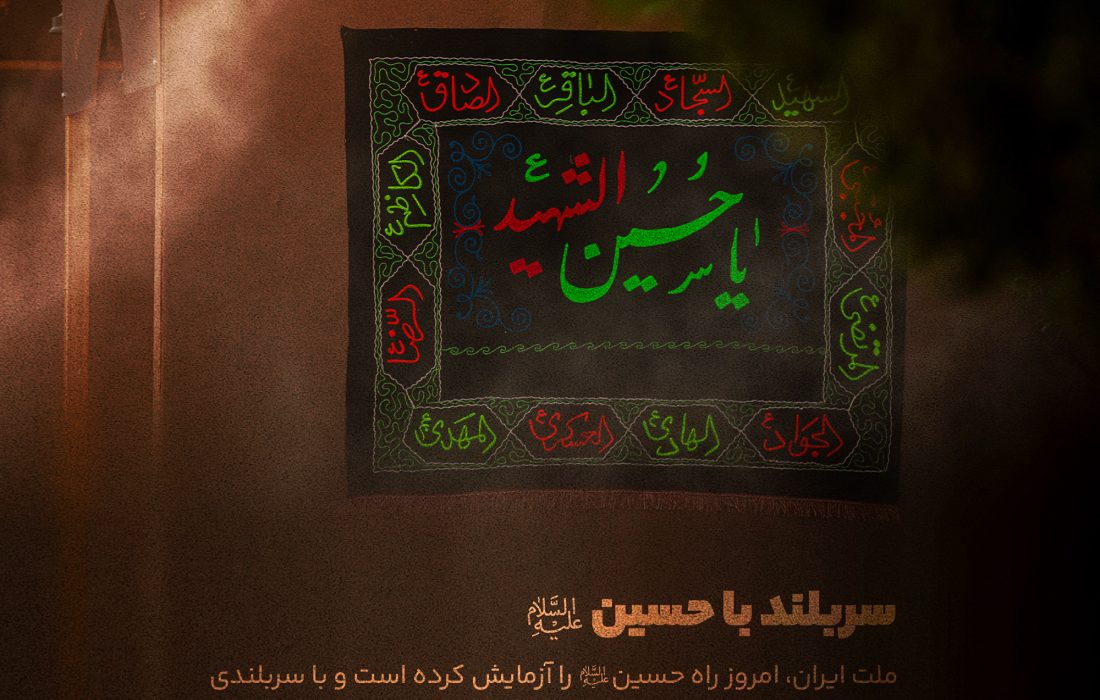 الشهید ع السجاد ع الباقر ع الصادق ع
المجتبی ع
المرتضی ع
الکاظم ع
الرضا ع
یا حسین الشهید ع
الجواد ع الهادی ع العسکری ع المهدی ع
سربلند با حسین علیه السلام
ملت ایران، امروز راه حسین علیه السلام را آزمایش کرده است و با سربلندی